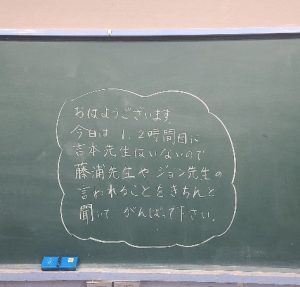 おはようございます。
今日は 1、2時間目に
吉本先生はいないので
藤浦先生や ジョン先生の
言われることをきちんと
聞いて がんばって下さい。